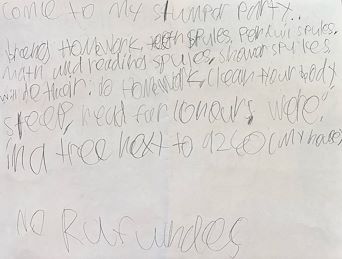 come to my slumper party..
bring: tomework, teeth spules, perkun spules,
math and reading spules, shower spules
will de tuain: to tomework, clean your body,
sleep, read for conours, were:
in a tree next to 9240 (my house)
No Rufundes